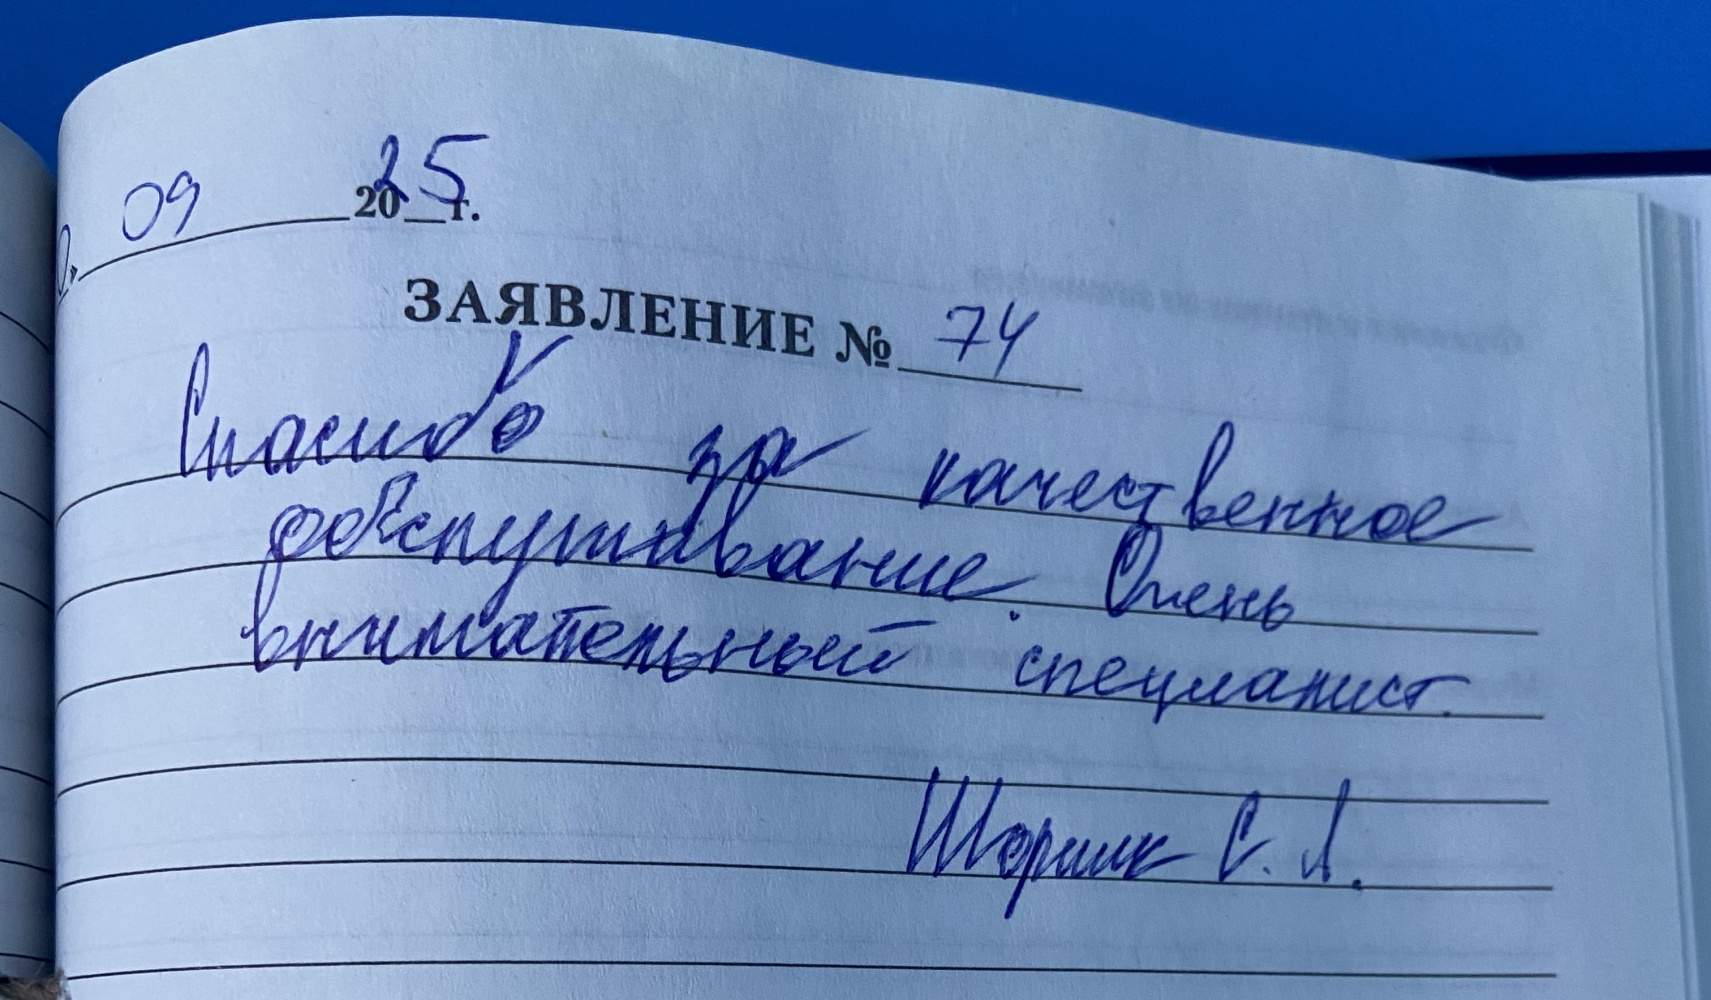 09 2025 г.
ЗАЯВЛЕНИЕ № 74
Спасибо за качественное
обслуживание. Очень
внимательный специалист.
С. Л.